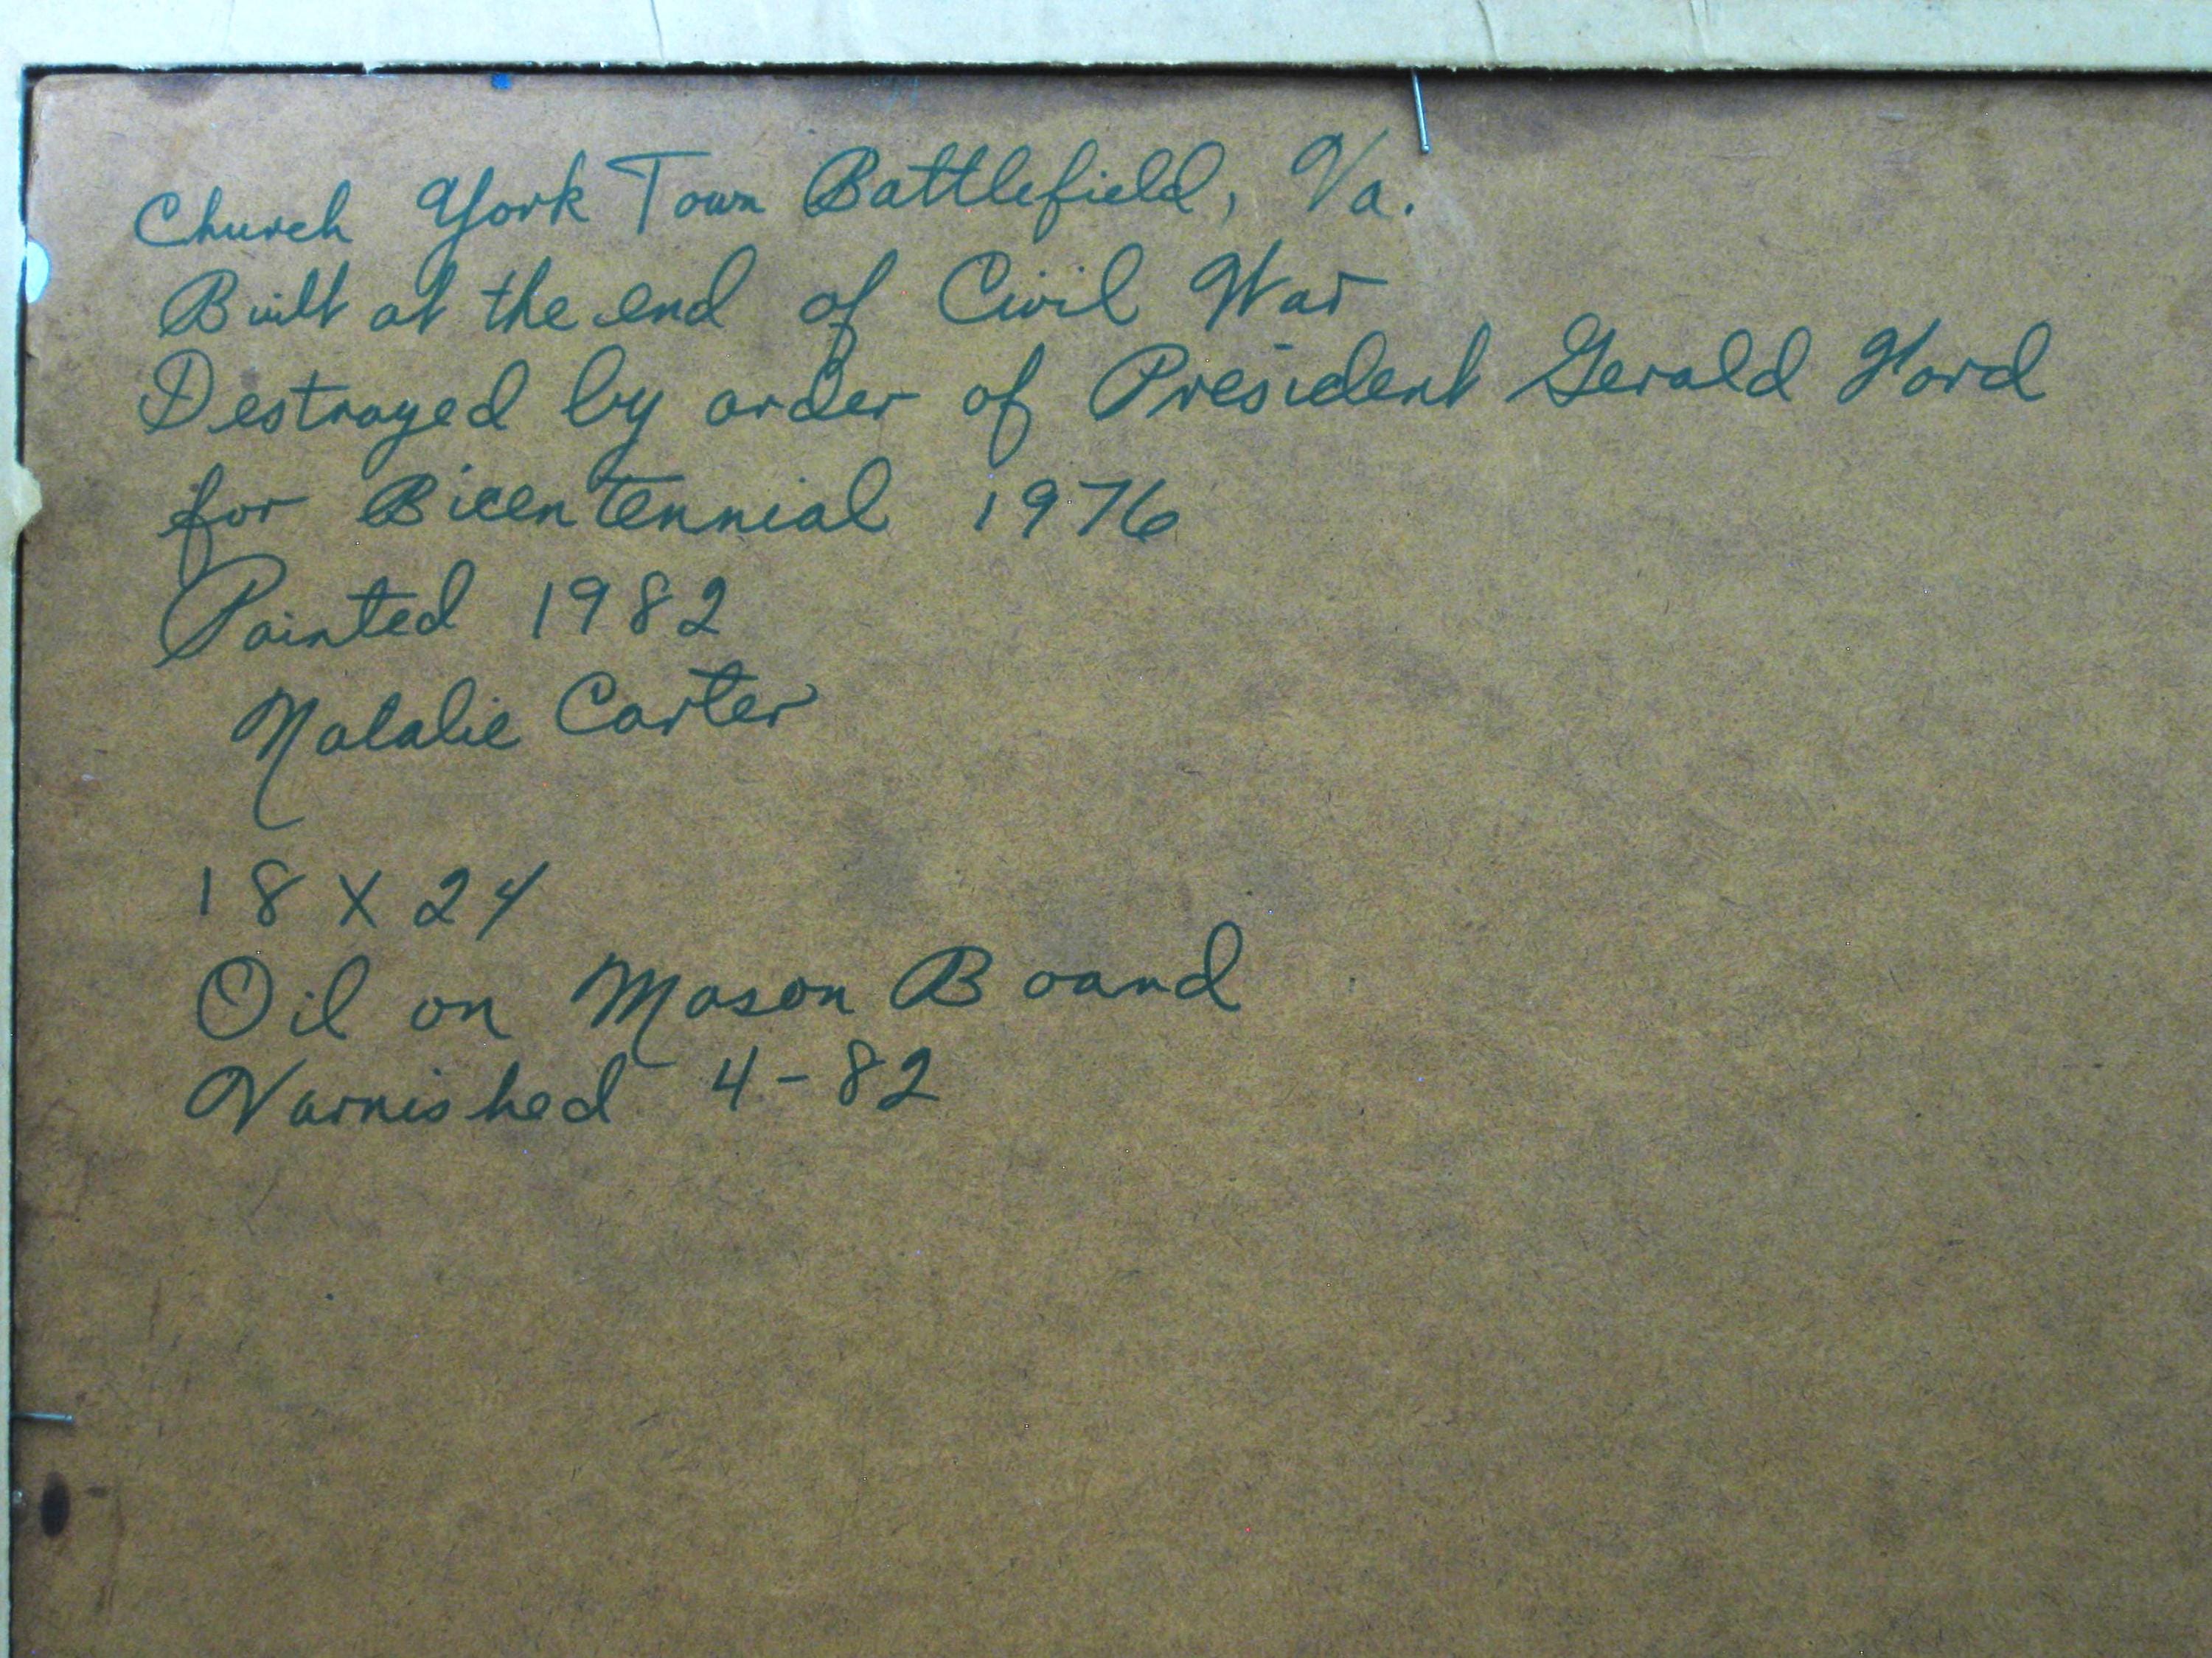 Church York Town Battlefield, Va.
Built at the end of Civil War
Destroyed by order of President Gerald Ford
for Bicentennial 1976
Painted 1982
Natalie Carter
18 X 24
Oil on Mason Board
Varnished 4-82